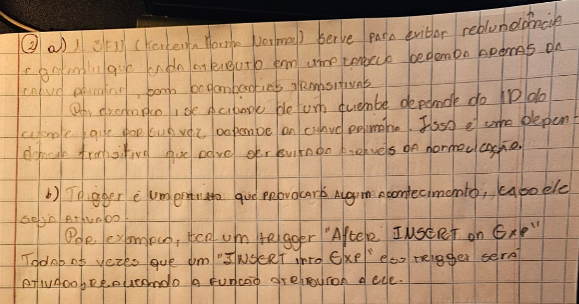 ② a) 3FN (Terceira Forma Normal) Serve para evitar redundância
e garantir que cada atributo em uma tabela dependa apenas da
chave primária, sem dependências transitivas
Por exemplo, se a cidade de um cliente depende do ID do
cliente, que por sua vez depende da chave primária. Isso é uma depen-
dência transitiva que deve ser evitada através da normalização.
b) Trigger é um gatilho que provocará algum acontecimento, caso ele
seja ativado.
Por exemplo, ter um trigger "After INSERT on Exe"
Todas as vezes que um "INSERT into Exe" esse trigger será
ativado executando a função a ele.